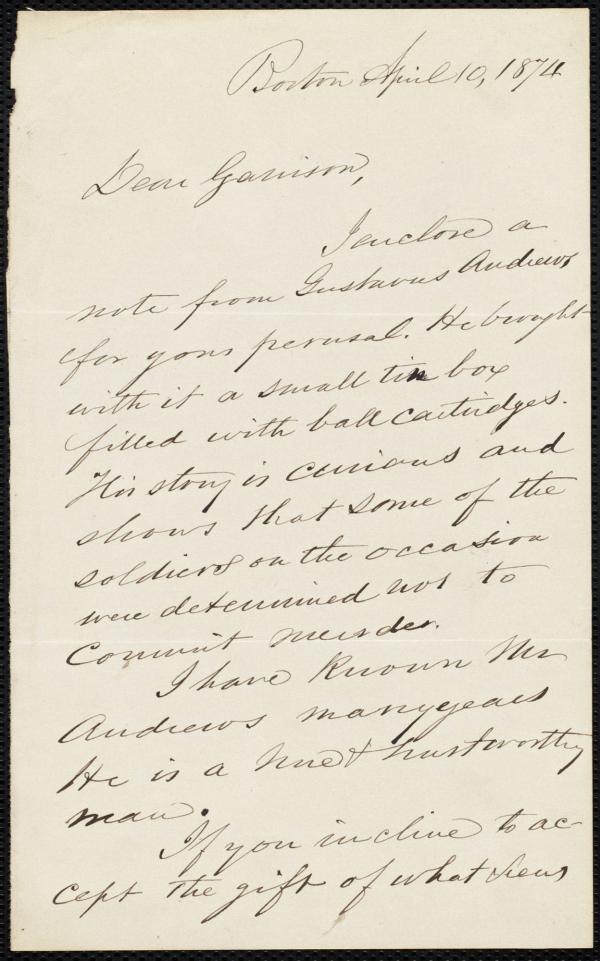 Boston April 10, 1874
Dear Garrison,
I enclose a
note from Gustavus Andrews
for your perusal. He brought
with it a small tin box
filled with ball cartridges.
His story is curious and
shows that some of the
soldiers on the occasion
were determined not to
commit murder.
I have known Mr
Andrews many years
He is a true & trustworthy
man.
If you incline to ac-
cept the gift of what